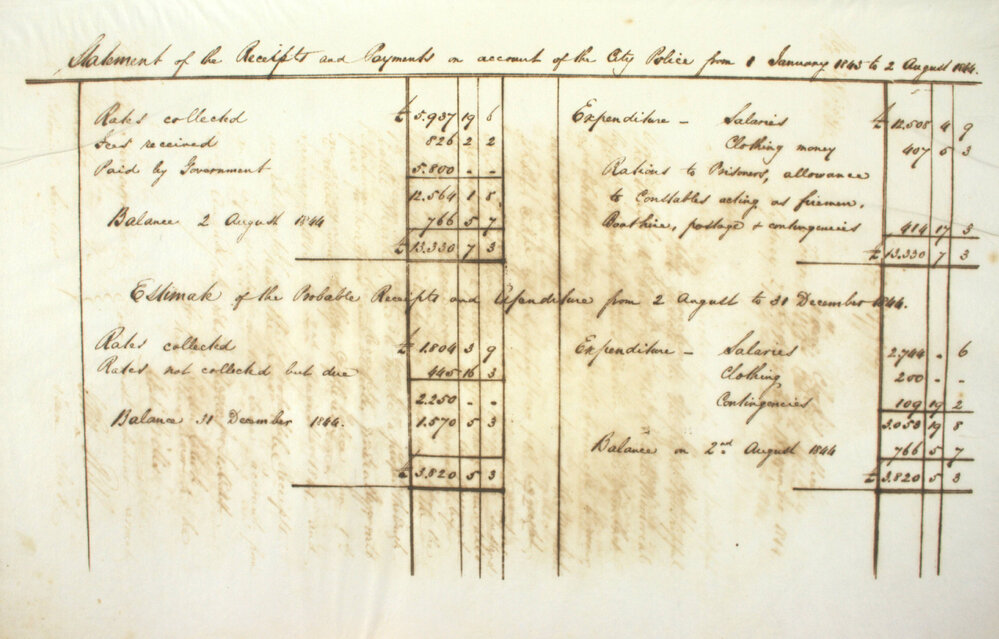 Statement of the Receipts and Payments on account of the City Police from 1 January 1843 to 2 August 1844.
Rates collected £ 5.937 19 6
Fees received 826 2 2
Paid by Government 5.800 - -
12.564 1 8
Balance 2 August 1844 766 5 7
£ 13.330 7 3
Expenditure - Salaries £ 12.508 4 9
Clothing money 407 5 3
Rations to Prisoners, allowance
to Constables acting as firemen,
Boathire, postage & contingencies 414 17 3
£ 13.330 7 3
Estimate of the Probable Receipts and Expenditure from 2 August to 31 December 1844.
Rates collected £ 1.804 3 9
Rates not collected but due 445 16 3
2.250 - -
Balance 31 December 1844. 1.570 5 3
£ 3.820 5 3
Expenditure - Salaries 2.744 - 6
Clothing 200 - -
Contingencies 109 19 2
3.053 19 8
Balance on 2nd August 1844 766 5 7
£ 3.820 5 3